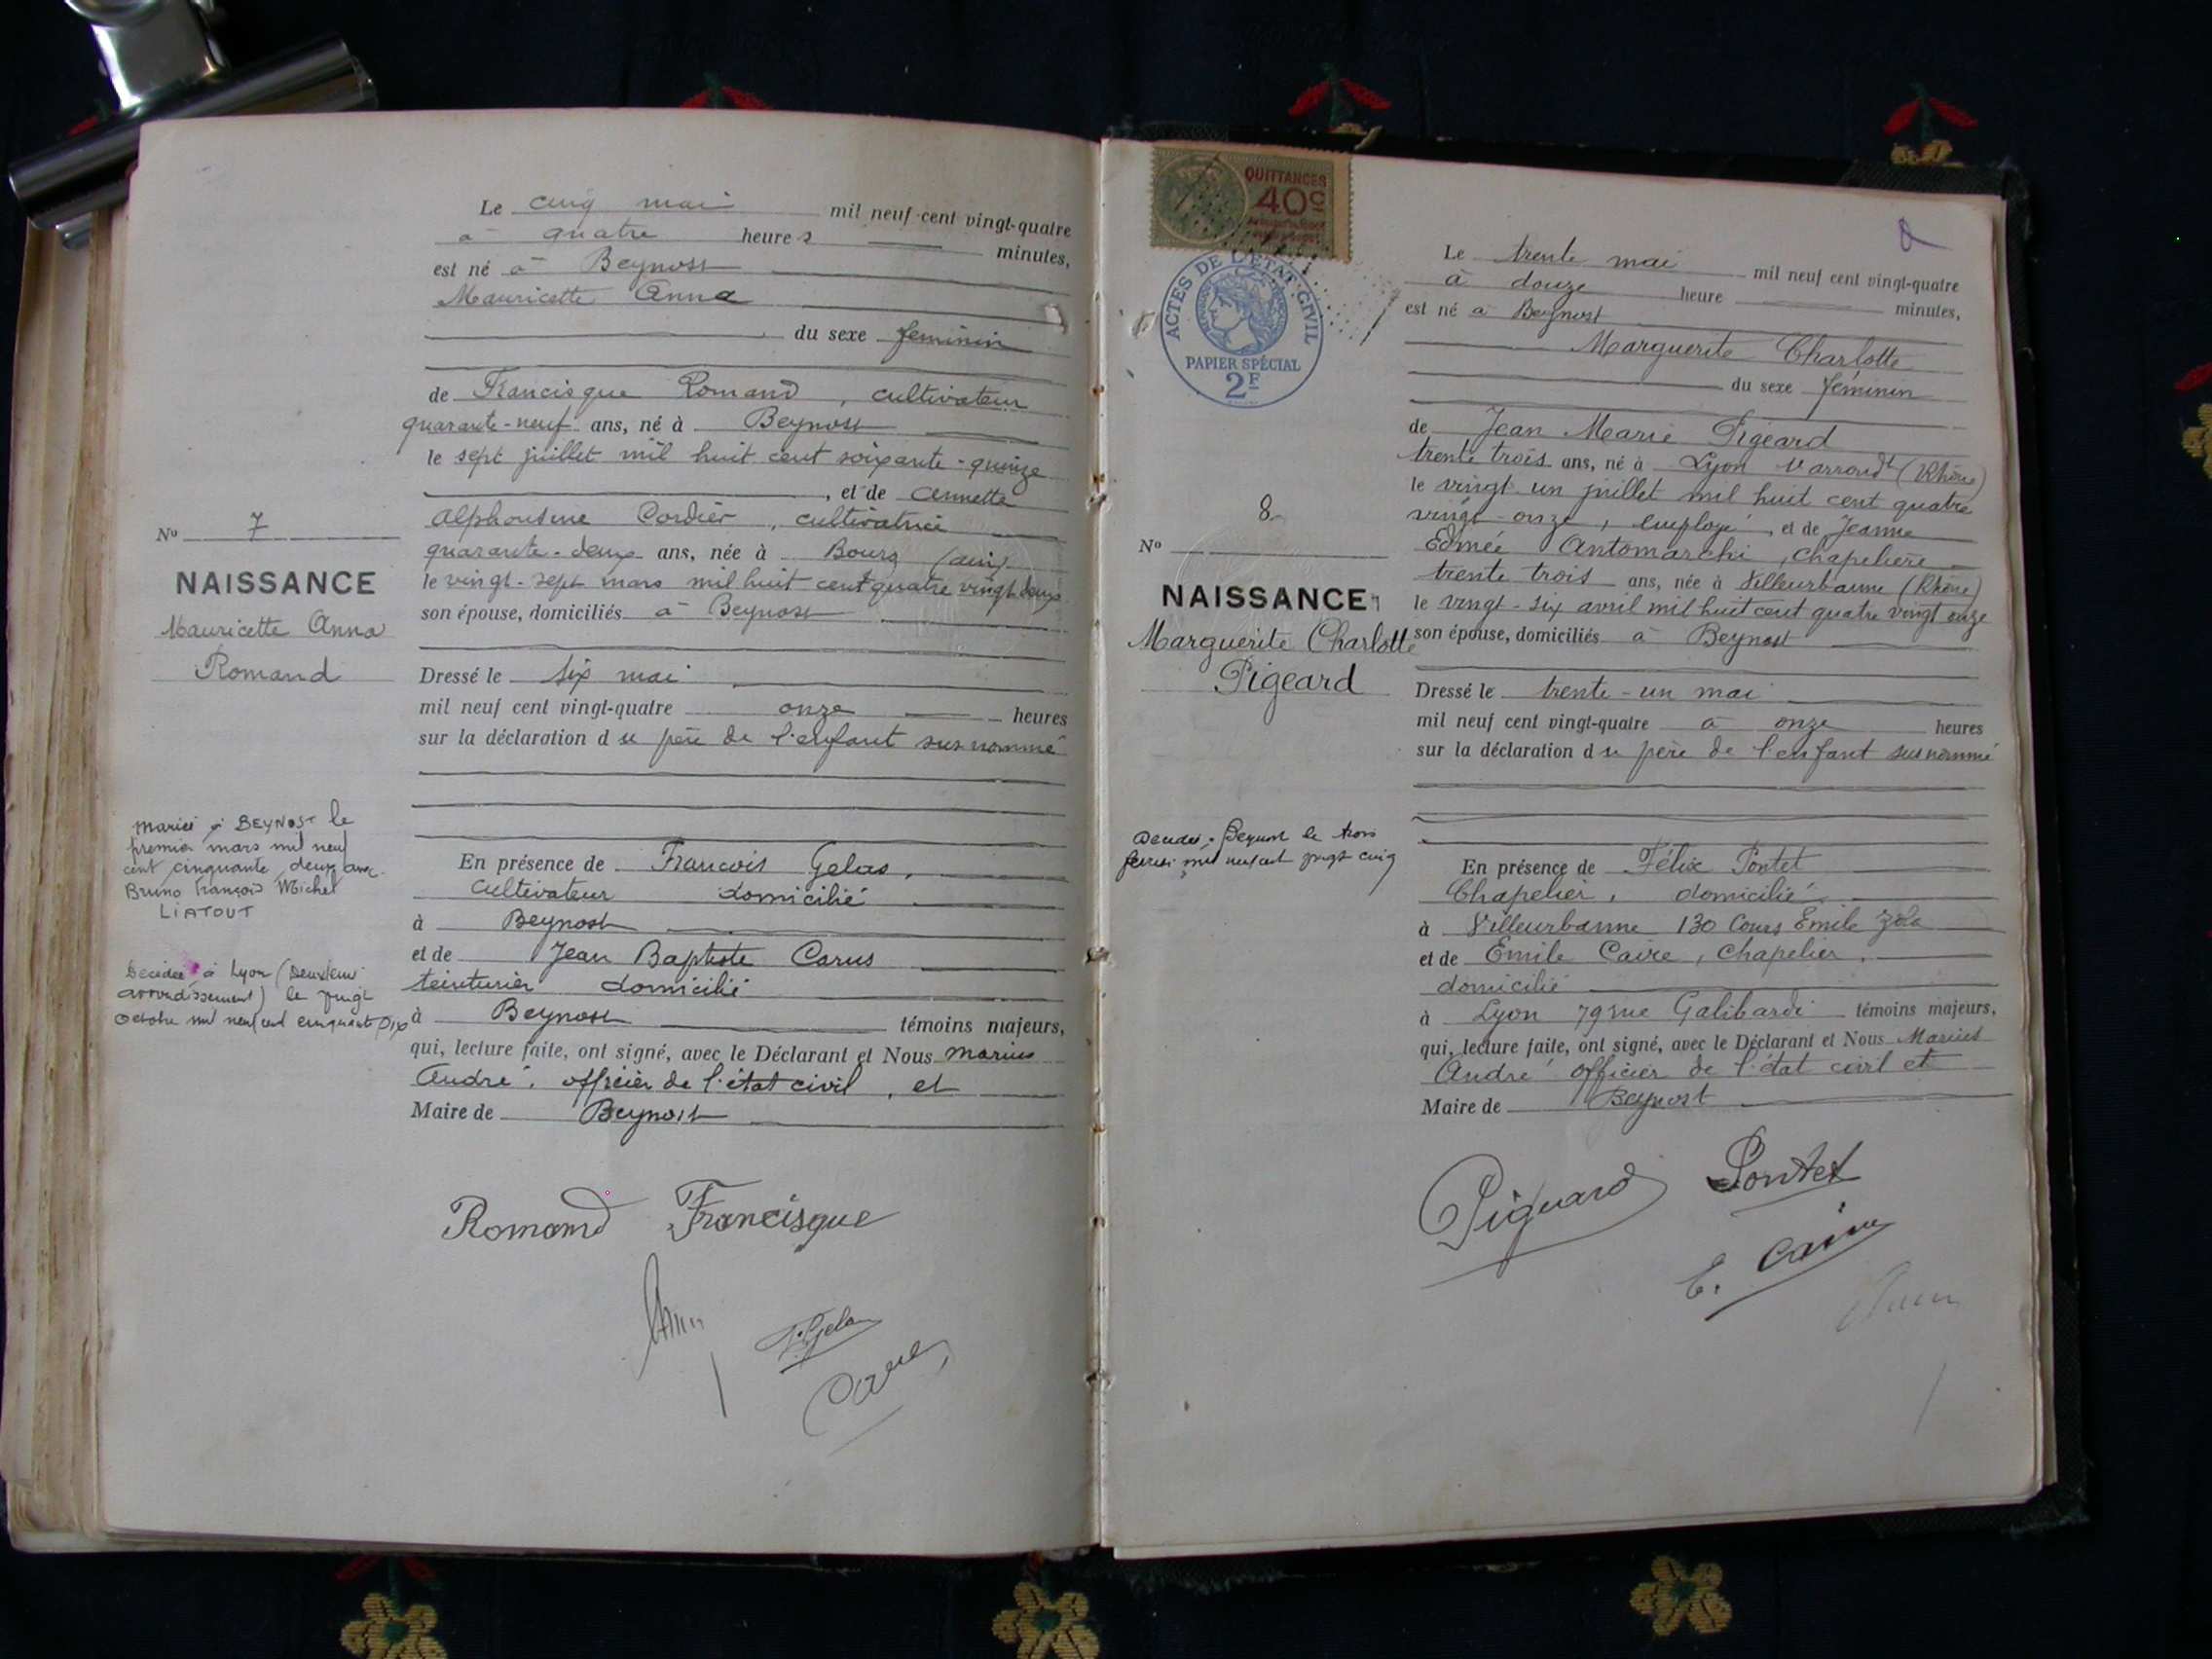 Le cinq mai mil neuf cent vingt-quatre
à quatre heures minutes,
est né à Beynost
Mauricette Anna
du sexe féminin
de Francisque Romand, cultivateur
quarante-neuf ans, né à Beynost
le sept juillet mil huit cent soixante-quinze
, et de Annette
Alphonsine Cordier, cultivatrice
quarante-deux ans, née à Bourg (ain)
le vingt-sept mars mil huit cent quatre vingt deux
son épouse, domiciliés à Beynost
Dressé le six mai
mil neuf cent vingt-quatre onze heures
sur la déclaration du père de l'enfant sus nommé
En présence de Francois Gelas,
cultivateur domicilié
à Beynost
et de Jean Baptiste Carus
teinturier domicilié
à Beynost témoins majeurs,
qui, lecture faite, ont signé, avec le Déclarant et Nous Marius
André, officier de l'état civil, et
Maire de Beynost
Romand Francisque
No 7
NAISSANCE
Mauricette Anna
Romand
Mariée à BEYNOST le
premier mars mil neuf
cent cinquante deux avec
Bruno François Michel
LIATOUT
Décédée à Lyon (Deuxième
arrondissement) le vingt
octobre mil neuf cent cinquante
QUITTANCES
40c
ACTES DE L'ETAT CIVIL
PAPIER SPÉCIAL
2F
8
No
NAISSANCE
Marguerite Charlotte
Pigeard
Décédée à Beynost le trois
février mil neuf cent vingt cinq
Le trente mai mil neuf cent vingt-quatre
à douze heure minutes,
est né à Beynost
Marguerite Charlotte
du sexe féminin
de Jean Marie Pigeard
trente trois ans, né à Lyon Vᵉ arrondt (Rhône)
le vingt un juillet mil huit cent quatre
vingt-onze, employé, et de Jeanne
Edmée Antomarchi, chapelière
trente trois ans, née à Villeurbanne (Rhône)
le vingt-six avril mil huit cent quatre vingt onze
son épouse, domiciliés à Beynost
Dressé le trente-un mai
mil neuf cent vingt-quatre à onze heures
sur la déclaration du père de l'enfant sus nommé
En présence de Félix Pontet
Chapelier, domicilié
à Villeurbanne 130 Cours Emile Zola
et de Emile Caire, Chapelier,
domicilié
à Lyon 79 rue Galibardi témoins majeurs,
qui, lecture faite, ont signé, avec le Déclarant et Nous Marius
André officier de l'état civil et
Maire de Beynost
Pontet
E. Caire